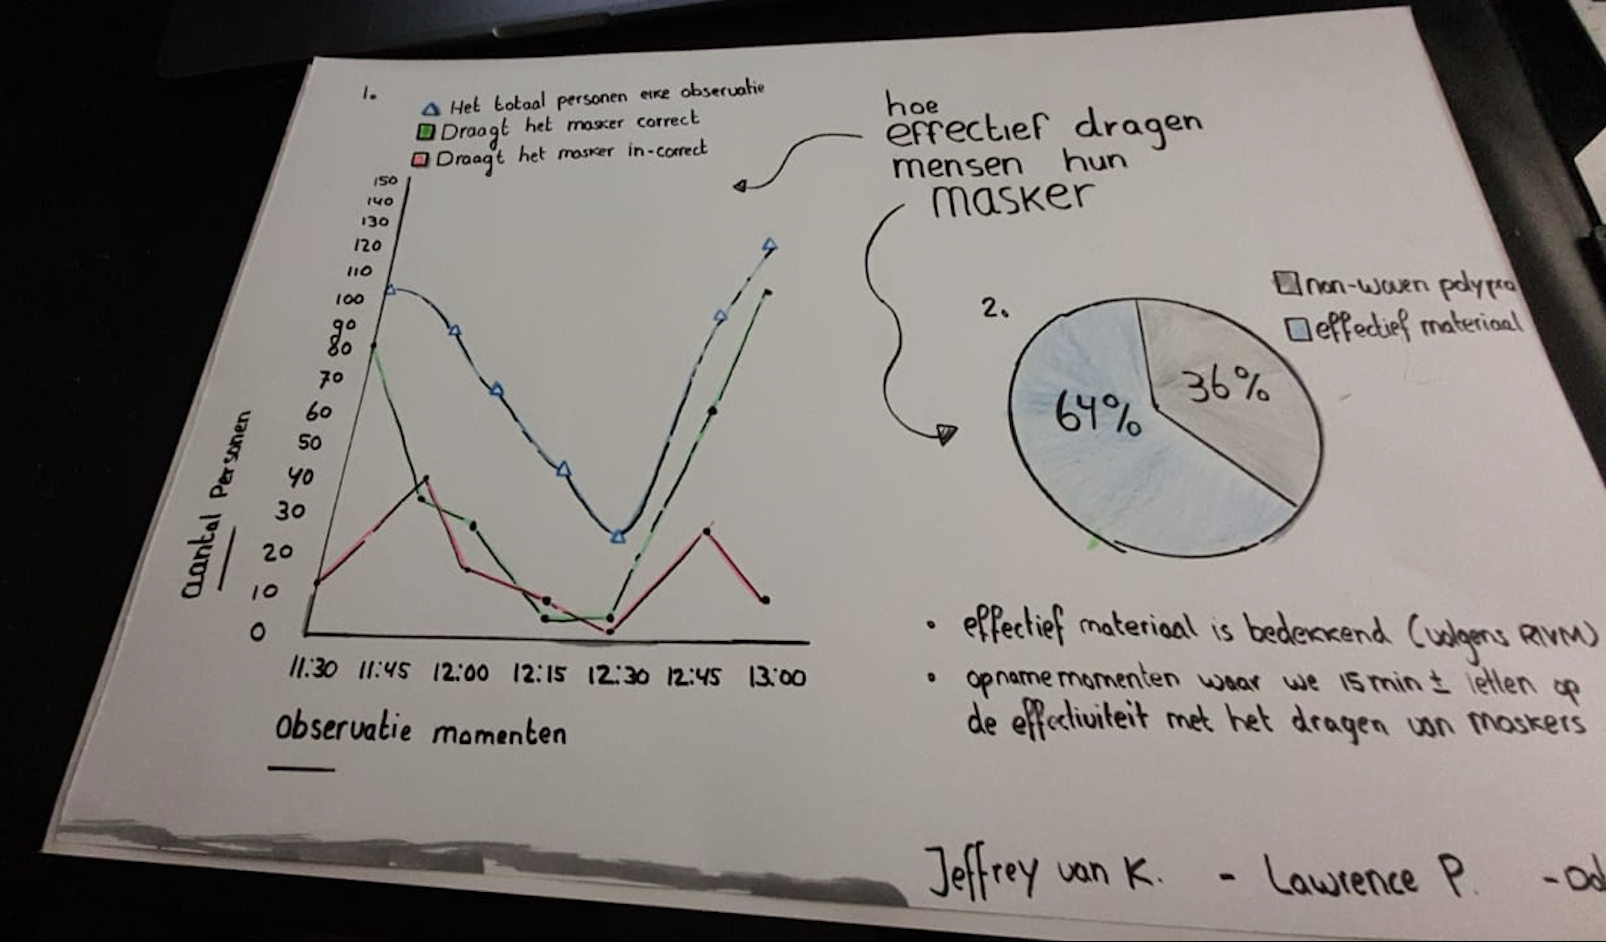 1.
△ Het totaal personen elke observatie
Draagt het masker correct
Draagt het masker in-correct
hoe
effectief dragen
mensen hun
masker
150
140
130
120
110
100
90
80
70
60
50
40
30
20
10
0
Aantal Personen
11:30 11:45 12:00 12:15 12:30 12:45 13:00
Observatie momenten
2.
non-woven polypro
effectief materiaal
64%
36%
• effectief materiaal is bedekkend (volgens RIVM)
• opname momenten waar we 15 min ± letten op
de effectiviteit met het dragen van maskers
Jeffrey van K. - Lawrence P. -